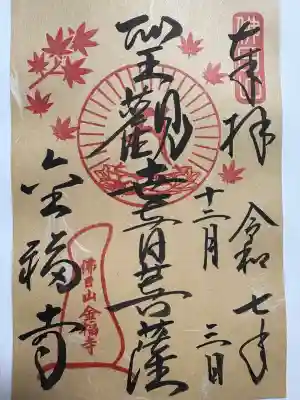 奉拝
令和七年
十二月三日
聖觀世音菩薩
金福寺
佛日山 金福寺